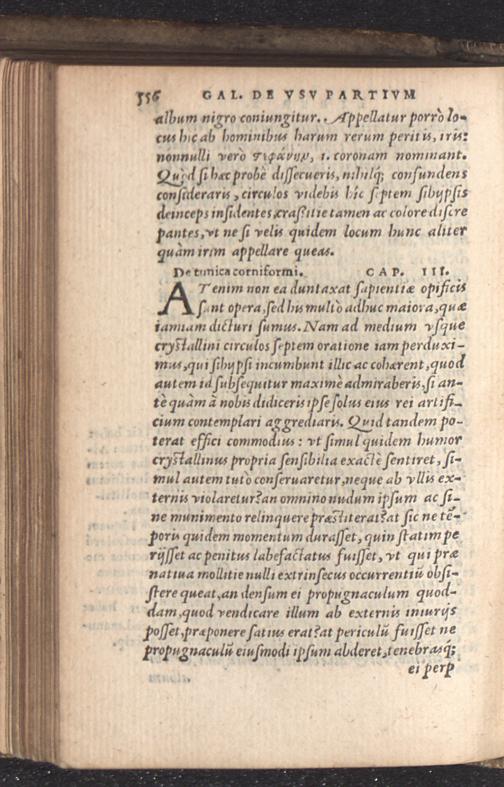 556 GAL. DE VSV PARTIVM
album nigro coniungitur. Appellatur porrò lo-
cus hic ab hominibus harum rerum peritis, iris:
nonnulli verò στεφάνην, i. coronam nominant.
Quòd si hæc probè dissecueris, nihilq; confundens
consideraris, circulos videbis hîc septem sibijpsis
deinceps insidentes, crassitie tamen ac colore discre
pantes, vt ne si velis quidem locum hunc aliter
quàm irim appellare queas.
De tunica corniformi. CAP. III.
AT enim non ea duntaxat sapientiæ opificis
sunt opera, sed his multò adhuc maiora, quæ
iamiam dicturi sumus. Nam ad medium vsque
crystallini circulos septem oratione iam perduxi-
mus, qui sibijpsi incumbunt illic ac cohærent, quod
autem id subsequitur maximè admiraberis, si an-
tè quàm à nobis didiceris ipse solus eius rei artifi-
cium contemplari aggrediaris. Quid tandem po-
terat effici commodius: vt simul quidem humor
crystallinus propria sensibilia exactè sentiret, si-
mul autem tutò conseruaretur, neque ab vllis ex-
ternis violaretur? an omnino nudum ipsum ac si-
ne munimento relinquere præstiterat? at sic ne tē-
poris quidem momentum durasset, quin statim pe
rijsset ac penitus labefactatus fuisset, vt qui præ
natiua mollitie nulli extrinsecus occurrentiū obsi-
stere queat, an densum ei propugnaculum quod-
dam, quod vendicare illum ab externis iniurijs
posset, præponere satius erat? at periculū fuisset ne
propugnaculū eiusmodi ipsum abderet, tenebrasq;
ei perp